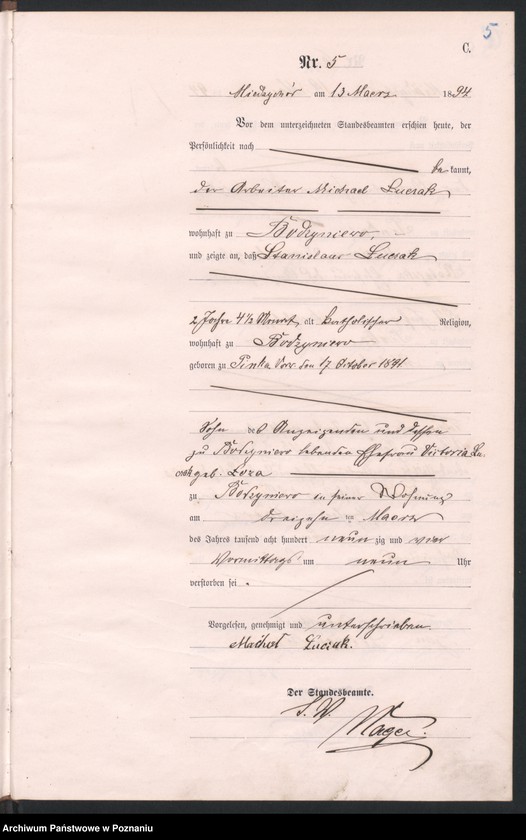 5
C.
Nr. 5
Miedzychód am 13 Maerz 1894
Vor dem unterzeichneten Standesbeamten erschien heute, der
Persönlichkeit nach
bekannt,
der Arbeiter Michael Luczak
wohnhaft zu Bodzyniewo,
und zeigte an, daß Stanislaus Luczak
2 Jahre 4 1/2 Monat, alt katholischer Religion,
wohnhaft zu Bodzyniewo
geboren zu Pinka Vorw. den 17 October 1891
Sohn des Anzeigenden und dessen
zu Bodzyniewo lebenden Ehefrau Victoria Lu-
czak geb. Loza
zu Bodzyniewo in seiner Wohnung
am dreizehn ten Maerz
des Jahres tausend acht hundert neun zig und vier
Vormittags um neun Uhr
verstorben sei.
Vorgelesen, genehmigt und unterschrieben
Michał Luczak.
Der Standesbeamte.
S. V.
Archiwum Państwowe w Poznaniu